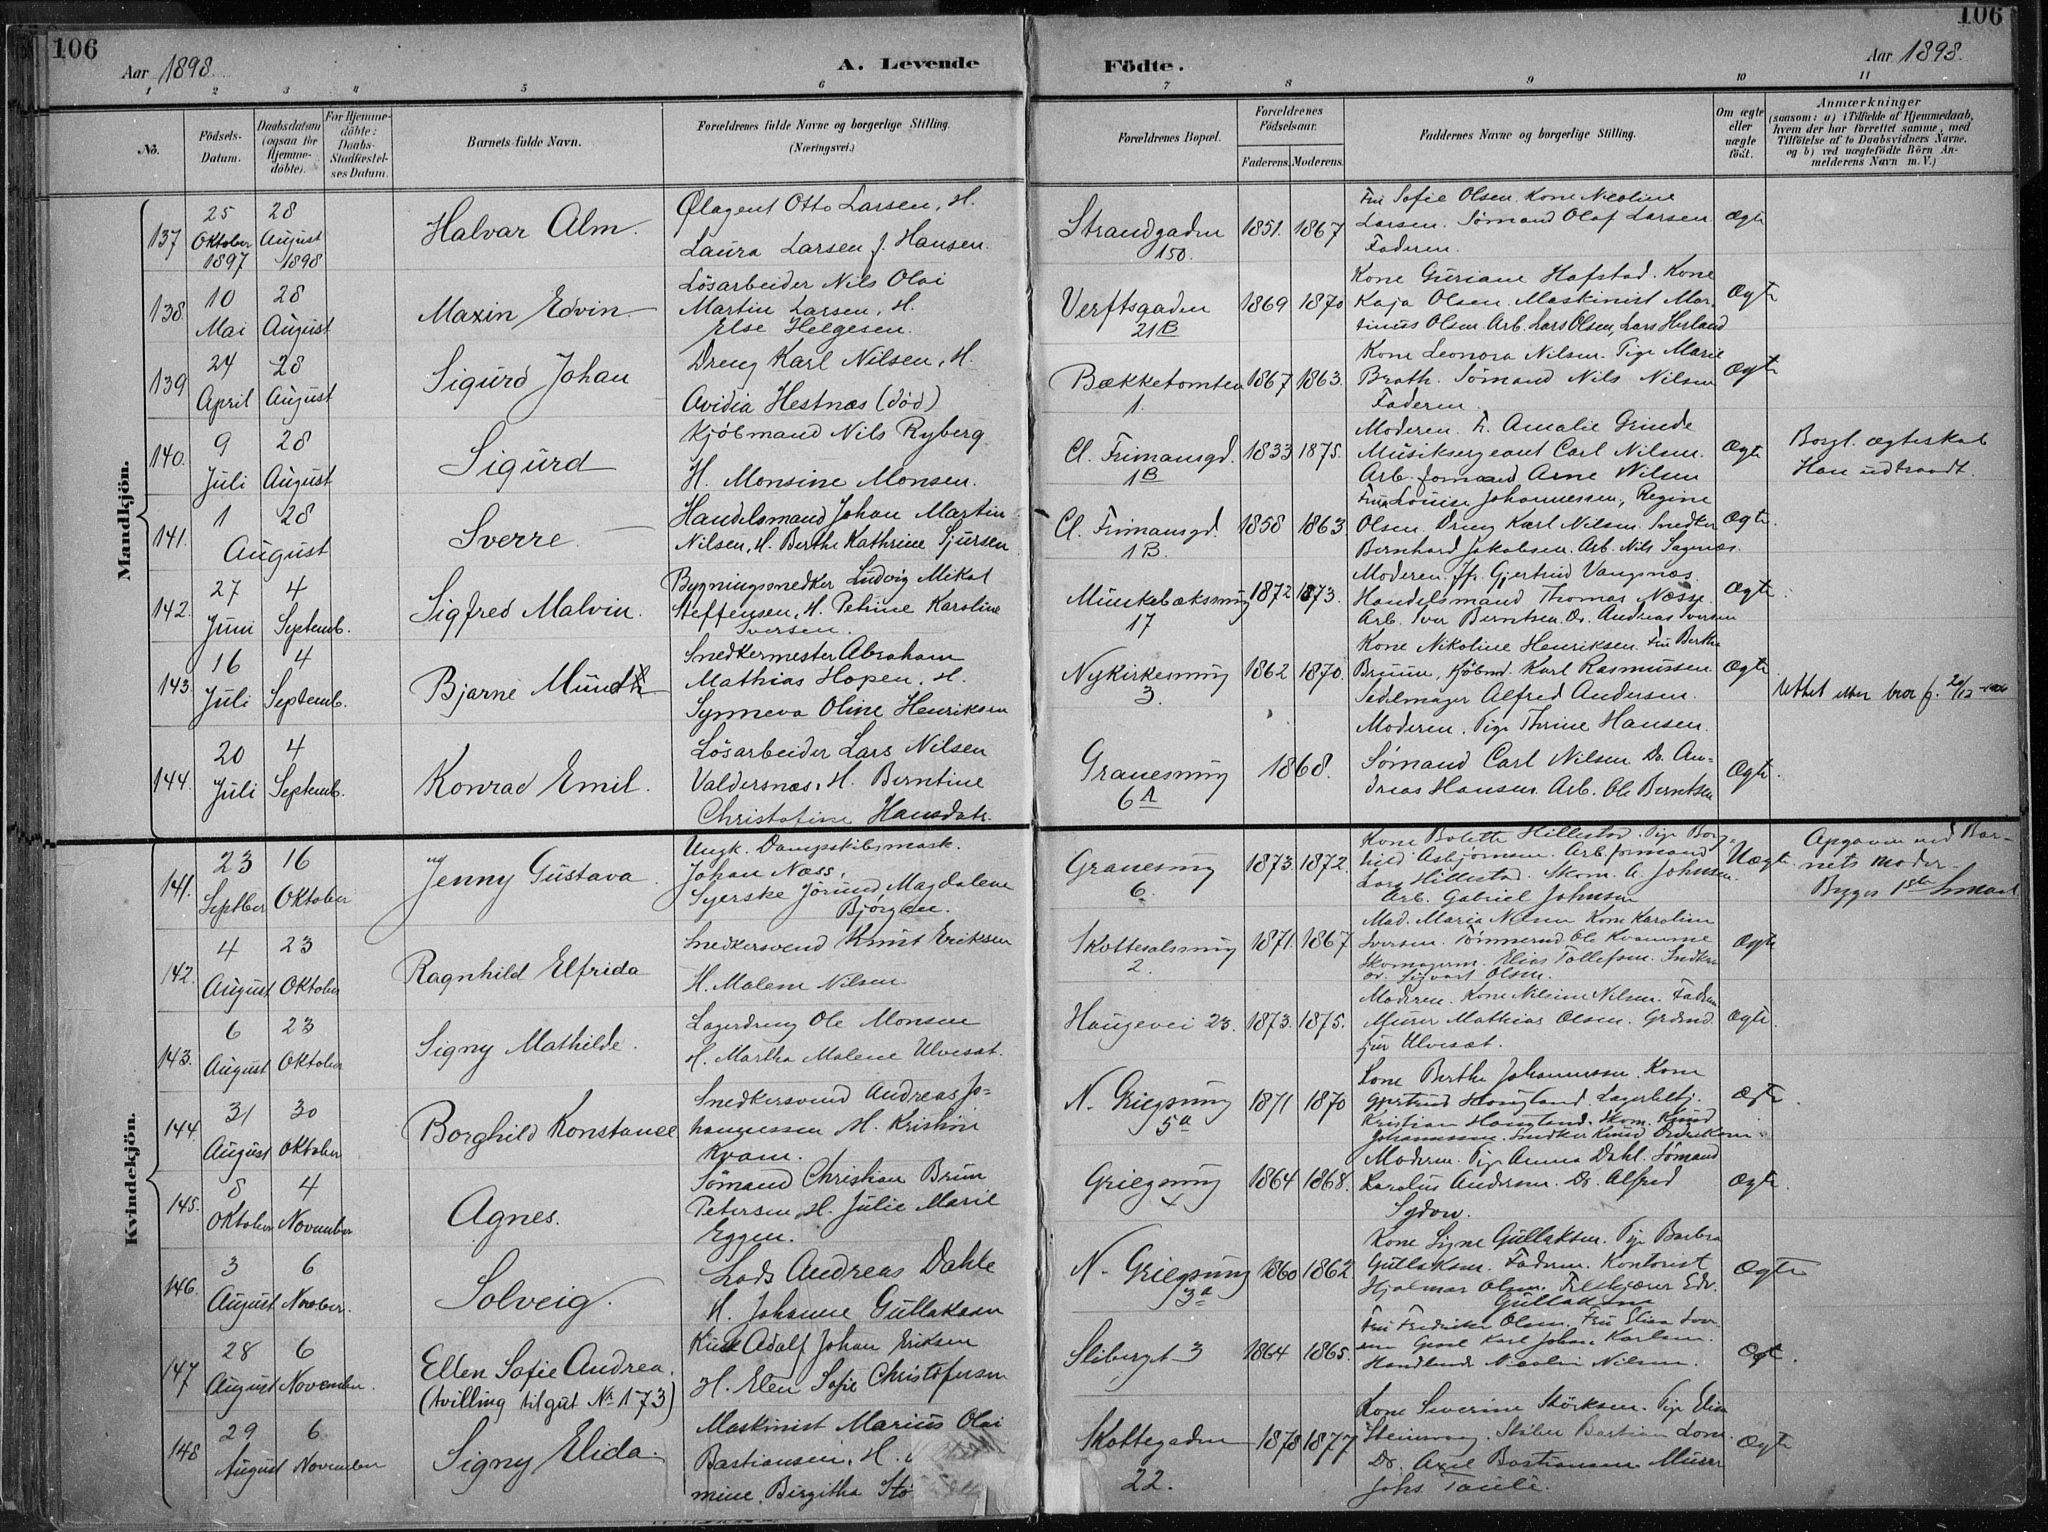 106
106
Aar 1898.
A. Levende
Födte.
Aar 1898.
1 2 3 4 5 6 7 8 9 10 11
No.
Födsels-Datum.
Daabsdatum (ogsaa för Hjemme-döbte).
For Hjemme-döbte: Daabs-Stadfæstel-ses Datum.
Barnets fulde Navn.
Forældrenes fulde Navne og borgerlige Stilling.
(Næringsvei.)
Forældrenes Bopæl.
Forældrenes Födselsaar.
Faderens. Moderens.
Faddernes Navne og borgerlige Stilling.
Om ægte eller uægte födt.
Anmærkninger
(saasom: a) i Tilfælde af Hjemmedaab, hvem der har forrettet samme, med Tilföielse af to Daabsvidners Navne, og b) ved uægtefödte Börn An-melderens Navn m. V.)
Mandkjön.
137 25 Oktober 1897 28 August 1898 Halvar Alm.
Ølagent Otto Larsen, H.
Laura Larsen f. Hansen.
Strandgaden 150. 1851. 1867
Fru Sofie Olsen. Kone Nicoline
Larsen. Sømand Olaf Larsen
Faderen.
Ægte
138. 10 Mai 28 August Maxin Edvin
Lösarbeider Nils Olai
Martin Larsen, H.
Else Helgesen.
Verftsgaden 21B 1869 1870
Kone Guriane Hafstad. Kone
Kaja Olsen. Maskinist Mar-
tinus Olsen. Arb. Lars Olsen, Lars Herland
Ægte
139 24 April 28 August Sigurd Johan
Dreng Karl Nilsen, H.
Avidia Hestnæs (død)
Bækketomten 1. 1867 1863.
Kone Leonora Nilsen. Pige Marie
Brath. Sømand Nils Nilsen
Faderen.
Ægte
140. 9 Juli 28 August Sigurd
Kjöbmand Nils Ryberg
H. Monsine Monsen.
Cl. Frimansgd. 1B 1833 1875.
Moderen. F. Amalie Grinde
Musiksergeant Carl Nilsen.
Arb. formand Arne Nilsen
Ægte
Borgl. ægteskab
Han udtraadt.
141. 1 28 August Sverre
Handelsmand Johan Martin
Nilsen, H. Berthe Kathrine Sjursen
Cl. Frimansgd. 1B. 1858 1863
Fru Louise Johannessen, Regine
Olsen. Dreng Karl Nilsen. Snedker
Bernhard Jakobsen. Arb. Nils Sagnæs.
Ægte.
142. 27 Juni 4 Septemb. Sigfred Malvin.
Bygningssnedker Ludvig Mikal
Steffensen, H. Petrine Karoline
Iversen.
Munkebæksmug 17 1872 1873.
Moderen. Jfr. Gjertrud Vangsnæs.
Handelsmand Thomas Næsse.
Arb. Iver Berntsen. Do. Andreas Iversen
Ægte.
143. 16 Juli 4 Septemb. Bjarne Mundth
Snedkermester Abraham
Mathias Hopen, H.
Synneva Oline Henriksen
Nykirkesmug 3. 1862 1870.
Kone Nikoline Henriksen. Fru Berthe
Bruun, Kjöbmd. Karl Rasmussen
Sadelmager Alfred Andersen.
Ægte
rettet etter brev f. 20/12
144. 20 Juli 4 Septemb. Konrad Emil.
Lösarbeider Lars Nilsen
Valdersnæs, H. Berntine
Christofine Hansdatr.
Granesmug 6A 1868.
Moderen. Pige Thrine Hansen.
Sømand Carl Nilsen Do. An-
dreas Hansen. Arb. Ole Berntsen
Ægte.
Kvindekjön.
141. 23 Septber 16 Oktober Jenny Gustava
Ungk. Dampskibsmask.
Johan Næss,
Syerske Jörund Magdalene
Bjørgan.
Granesmug 6. 1873. 1872.
Kone Bolette Hillestad. Pige Borg-
hild Asbjørnsen. Arb.formand
Lars Hillestad. Skom. A. Johnsen.
Arb. Gabriel Johnsen
Uægte.
Opgaven ved Bar-
nets moder.
142. 4 August 23 Oktober Ragnhild Elfrida
Snedkersvend Knut Eriksen
H. Malene Nilsen.
Skottesalsmug 2. 1871. 1867.
Mad. Maria Nilsen Kone Karoline
Iversen. Tömmermd Ole Kvamme
Skomagerm. Elias Tollefsen. Snedker
sv. Sigvart Olsen.
Ægte
143. 6 August 23 Oktober Signy Mathilde.
Lagerdreng Ole Monsen
H. Martha Malene Ulvesæt.
Haugevei 23. 1873. 1875.
Moderen. Kone Nilsine Nilsen. Faderen
Murer Mathias Olsen.
Ulvesæt.
Ægte.
144. 31 August 30 Oktober Borghild Konstance
Snedkersvend Andreas Jo-
hannessen H. Kristine
Kvam.
N. Griegsmug 5a 1871 1870
Kone Berthe Johannessen. Kone
Gjertrud Haugland. Lagerbetj.
Kristian Haugland. Skom. Knud
Johannessen. Snedker Knud
Ægte.
145. 8 Oktober 4 November Agnes.
Sömand Christian Brun
Petersen, H. Julie Marie
Eggen.
Griegsmug 1864 1868.
Moderen. Pige Anna Dahl. Sömand
Karolus Andersen. Do. Alfred
Sydow.
Ægte.
146. 3 August 6 November. Solveig.
Lods Andreas Dahle
H. Johanne Gullaksen
N. Griegsmug 3a 1860 1862
Kone Signe Gullaksen. Pige Barbra
Gullaksen. Faderen. Kontorist
Hjalmar Olsen. Filehugger Edv.
Gullaksen
Ægte
147 28 August 6 November. Ellen Sofie Andrea.
(tvilling til gut No 173)
Kusk Adolf Johan Eriksen
H. Elen Sofie Christofersen
Sliberget 3 1864 1865.
Fru Fredrikke Olsen. Fru Elisa
Karl Johan Karlsen.
Nicolai Nilsen.
Ægte.
148 29 August 6 November Signy Elida.
Maskinist Marius Olai
Bastiansen, H.
mine Birgitha Stö
Skottegaden 22. 1878 1877
Kone Severine Störksen. Pige Elise
Steinvaag. Stöber Bastian
Do. Axel Bastiansen Murer
Johs.
Ægte